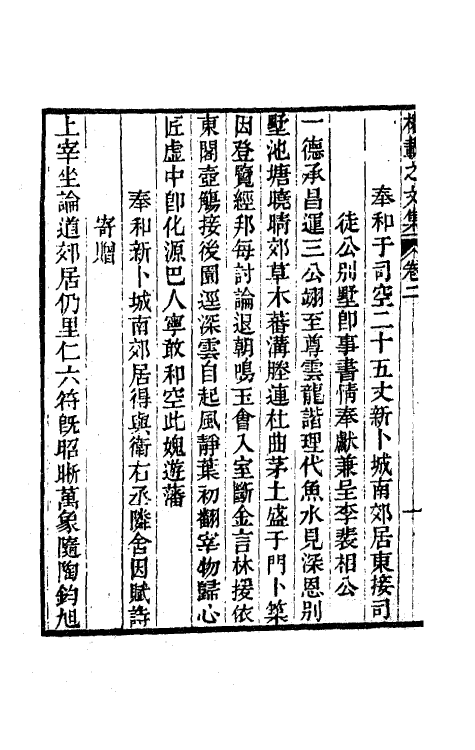 權載之文集 卷二 十
奉和于司空二十五丈新卜城南郊居東接司
徒公別墅卽事書情奉獻兼呈李裴相公
一德承昌運三公翊至尊雲龍諧理代魚水見深恩別
墅池塘曉晴郊草木蕃溝塍連杜曲茅土盛于門卜築
因登覽經邦每討論退朝鳴玉會入室斷金言林援依
東閣壺觴接後園逕深雲自起風靜葉初翻宰物歸心
匠虛中卽化源巴人寧敢和空此媿遊藩
奉和新卜城南郊居得與衛右丞隣舍因賦詩
寄贈
上宰坐論道郊居仍里仁六符旣昭晰萬象隨陶鈞旭